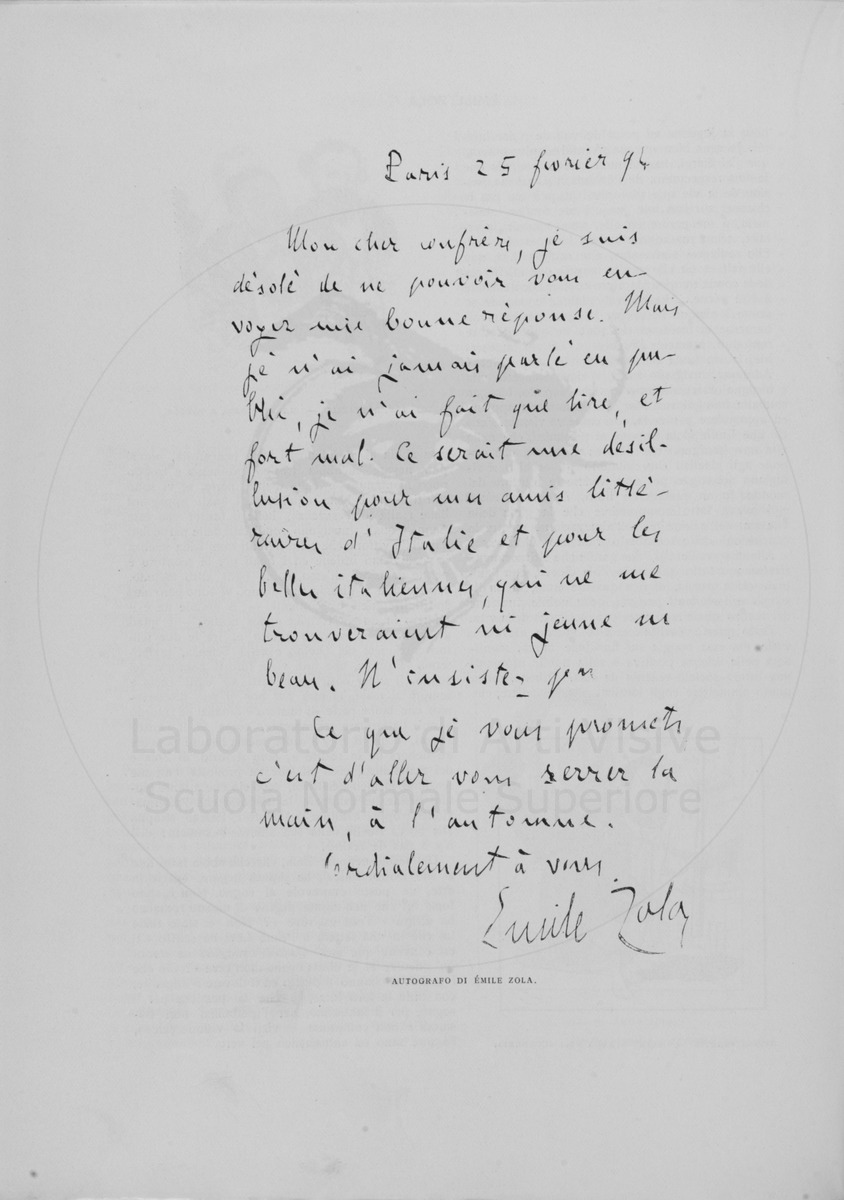 Paris 25 février 94
Mon cher confrère, je suis
désolé de ne pouvoir vous en-
voyer une bonne réponse. Mais
je n'ai jamais parlé en pu-
blic, je n'ai fait que lire, et
fort mal. Ce serait une désil-
lusion pour mes amis litté-
raires d'Italie et pour les
belles italiennes, qui ne me
trouveraient ni jeune ni
beau. N'insistez pas
Ce que je vous promets
c'est d'aller vous serrer la
main, à l'automne.
Cordialement à vous.
Emile Zola
AUTOGRAFO DI ÉMILE ZOLA.
Laboratorio di Arti Visive
Scuola Normale Superiore